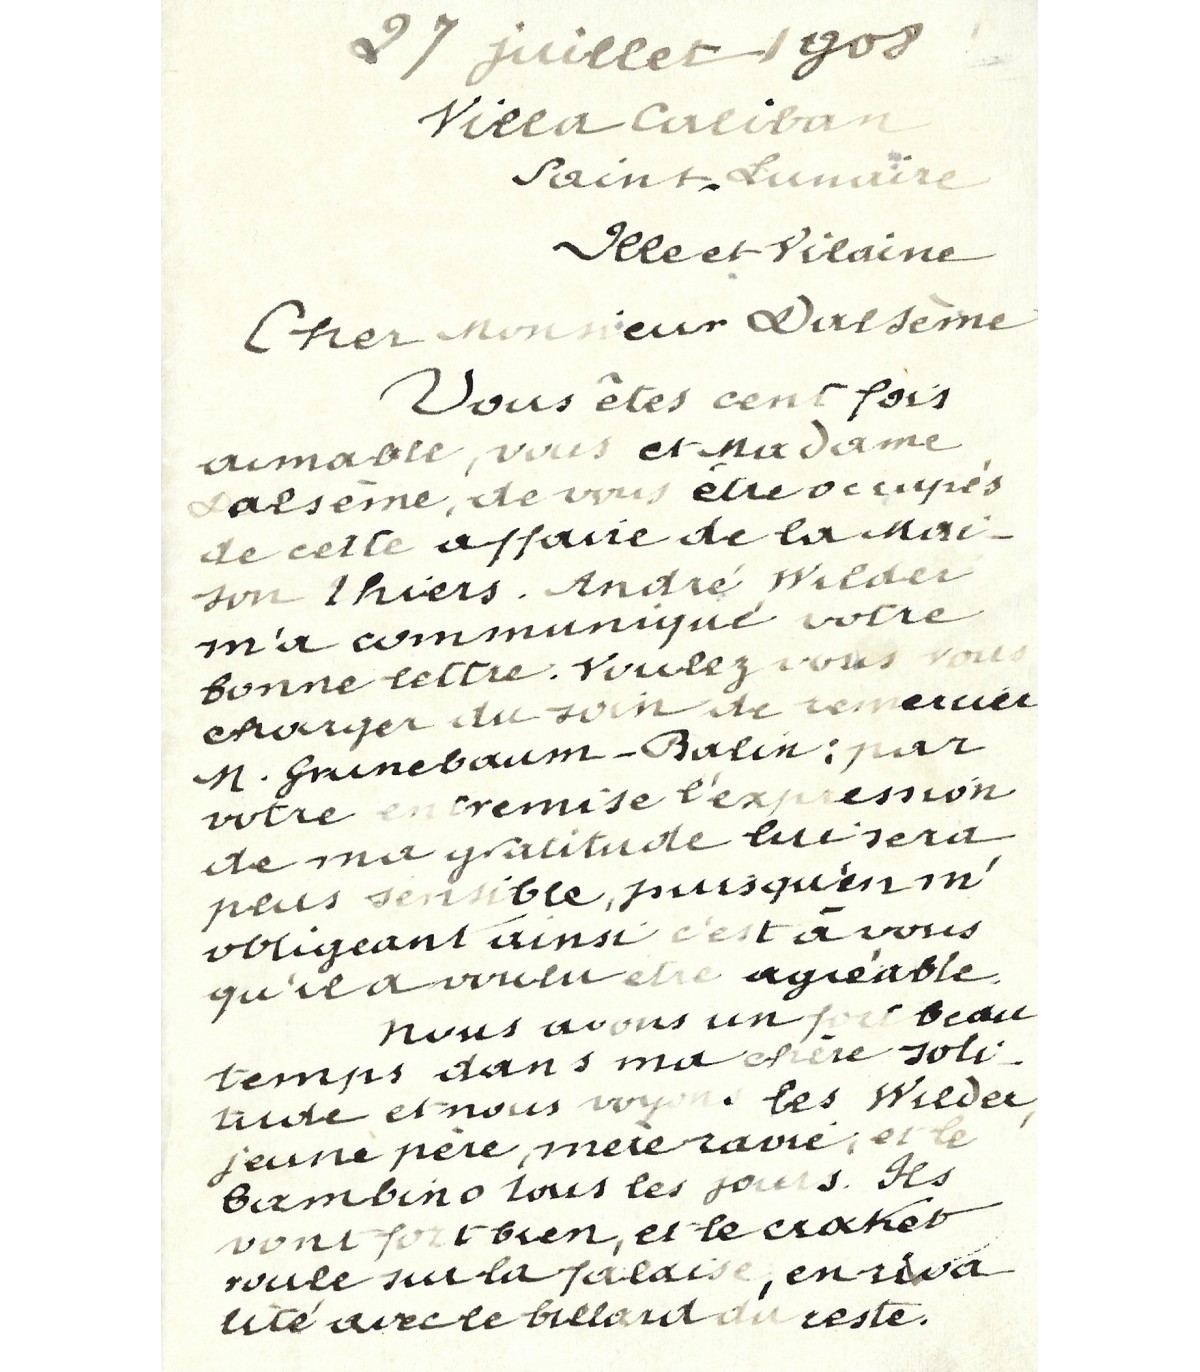 27 juillet 1908
Villa Caliban
Saint-Lunaire
Ille et Vilaine
Cher Monsieur Dalsème
Vous êtes cent fois
aimable, vous et Madame
Dalsème, de vous être occupés
de cette affaire de la Mai-
son Thiers. André Wilder
m'a communiqué votre
bonne lettre. Voulez vous vous
charger du soin de remercier
M. Grunebaum-Balin; par
votre entremise l'expression
de ma gratitude lui sera
plus sensible, puisqu'en m'
obligeant ainsi c'est à vous
qu'il a voulu être agréable.
Nous avons un fort beau
temps dans ma chère soli-
tude et nous voyons les Wilder,
jeune père, mère ravie, et le
bambino tous les jours. Ils
vont fort bien, et le craket
roule sur la falaise, en riva
lité avec le billard du reste.